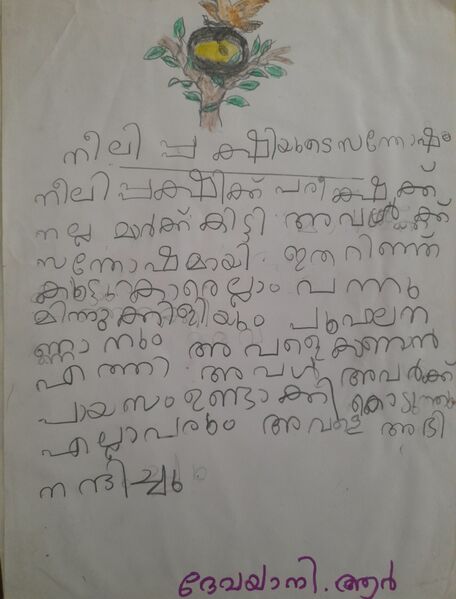 നീലിപ്പക്ഷിയുടെ സന്തോഷം
നീലിപ്പക്ഷിക്ക് പരീക്ഷക്ക്
നല്ല മാർക്ക് കിട്ടി അവൾക്ക്
സന്തോഷമായി ഇതറിഞ്ഞ്
കൂട്ടുകാരെല്ലാം വന്നു
മിന്നുക്കിളിയും പൂവലന
ണ്ണാനും അവളെകാണാൻ
എത്തി അവൾ അവർക്ക്
പായസംഉണ്ടാക്കി കൊടുത്തു
എല്ലാവരും അവളെ അഭി
നന്ദിച്ചു
ദേവയാനി. ആർ